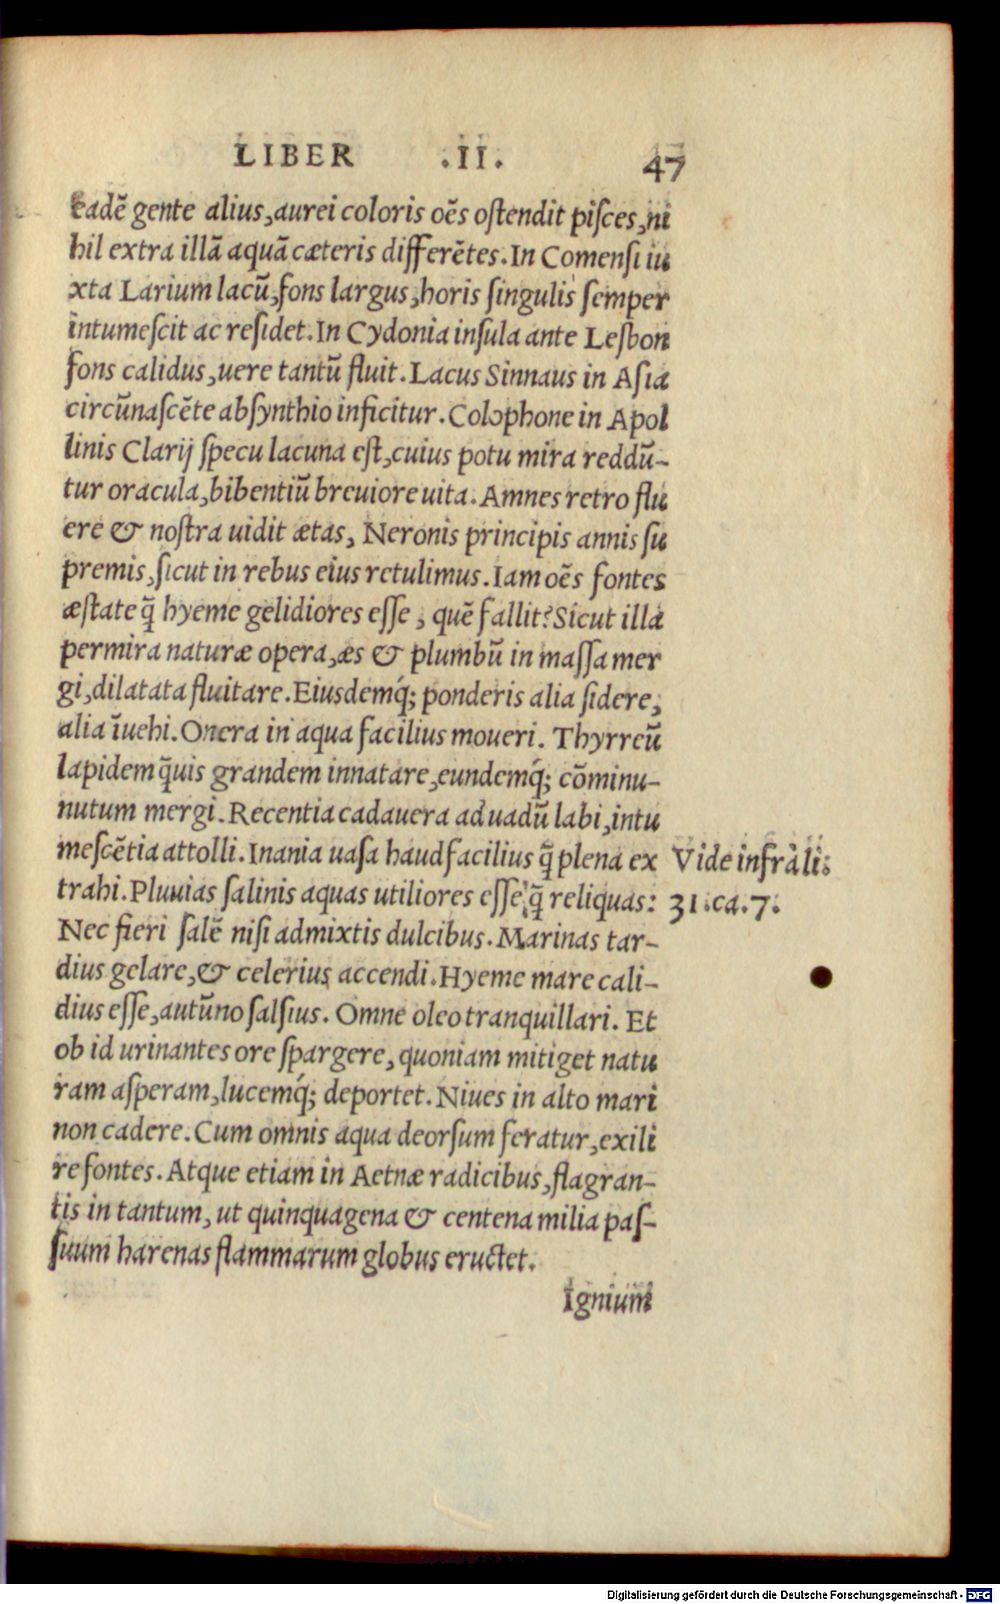 LIBER .II. 47
eadē gente alius, aurei coloris oēs ostendit pisces, ni
hil extra illā aquā cæteris differētes. In Comensi iu
xta Larium lacū, fons largus, horis singulis semper
intumescit ac residet. In Cydonia insula ante Lesbon
fons calidus, uere tantū fluit. Lacus Sinnaus in Asia
circūnascēte absynthio inficitur. Colophone in Apol
linis Clarij specu lacuna est, cuius potu mira reddū-
tur oracula, bibentiū breuiore uita. Amnes retro flu
ere & nostra uidit ætas, Neronis principis annis su
premis, sicut in rebus eius retulimus. Iam oēs fontes
æstate q̄ hyeme gelidiores esse, quē fallit? Sicut illa
permira naturæ opera, æs & plumbū in massa mer
gi, dilatata fluitare. Eiusdemq́; ponderis alia sidere,
alia īuehi. Onera in aqua facilius moueri. Thyrreū
lapidem q̄uis grandem innatare, eundemq́; cōminu-
nutum mergi. Recentia cadauera ad uadū labi, intu
mescētia attolli. Inania uasa haud facilius q̄ plena ex
trahi. Pluuias salinis aquas utiliores esse, q̄ reliquas:
Nec fieri salē nisi admixtis dulcibus. Marinas tar-
dius gelare, & celerius accendi. Hyeme mare cali-
dius esse, autūno salsius. Omne oleo tranquillari. Et
ob id urinantes ore spargere, quoniam mitiget natu
ram asperam, lucemq́; deportet. Niues in alto mari
non cadere. Cum omnis aqua deorsum feratur, exili
re fontes. Atque etiam in Aetnæ radicibus, flagran-
tis in tantum, ut quinquagena & centena milia pas-
suum harenas flammarum globus eructet.
Ignium
Vide infrà li.
31. ca. 7.
Digitalisierung gefördert durch die Deutsche Forschungsgemeinschaft - DFG